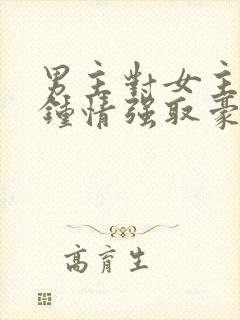 男主對女主
鍾情强取豪
高育生